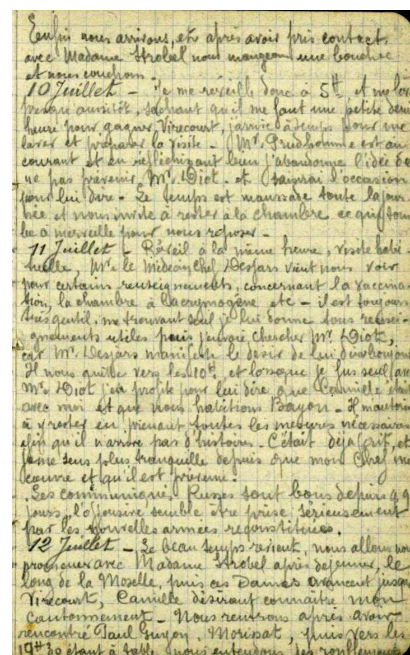 Enfin nous arrivons, et après avoir pris contact
avec Madame Strobel nous mangeons une bouchée
et nous couchons.
10 Juillet - Je me réveille donc à 5h et me lève
presque aussitôt, sachant qu'il me faut une petite demi
heure pour gagner Virecourt, j'arrive à temps pour me
laver et préparer la visite - Mr. Prudhomme est au
courant et en réfléchissant bien j'abandonne l'idée de
ne pas prévenir Mr. Diot. et l'occasion
pour lui dire - Le temps est maussade toute la jour
née et nous invite à rester à la chambre ce qui tom
be à merveille pour nous reposer -
11 Juillet - Réveil à la même heure, visite habi
tuelle, Mr. le Médecin Chef Desjars vient nous voir
pour certains renseignements, concernant la vaccina
tion, la chambre à lacrymogène etc - il est toujours
très gentil, me trouvant seul je lui donne tous rensei-
gnements utiles puis j'envoie chercher Mr. Diot,
car Mr. Desjars manifeste le désir de lui dire bonjour
Il nous quitte vers les 10h, et lorsque je fus seul avec
Mr. Diot j'en profite pour lui dire que Camille était
avec moi et que nous habitions Bayon - Il m'autorise
à y rester en prenant toutes les mesures nécessaires
afin qu'il n'arrive pas d'histoires - C'était déjà fait, et
je me sens plus tranquille depuis que mon Chef me
couvre et qu'il est prévenu.
Les communiqués Russes sont bons depuis 4
jours, l'offensive semble être prise sérieusement
par les nouvelles armées reconstituées.
12 Juillet - Le beau temps revient, nous allons nous
promener avec Madame Strobel après déjeuner, le
long de la Moselle, puis ces Dames avancent jusqu'à
Virecourt, Camille désirant connaître mon
cantonnement - Nous rentrons après avoir
rencontré Paul Guyon, Morissat, puis vers les
19h30 étant à table, nous entendons des roulements